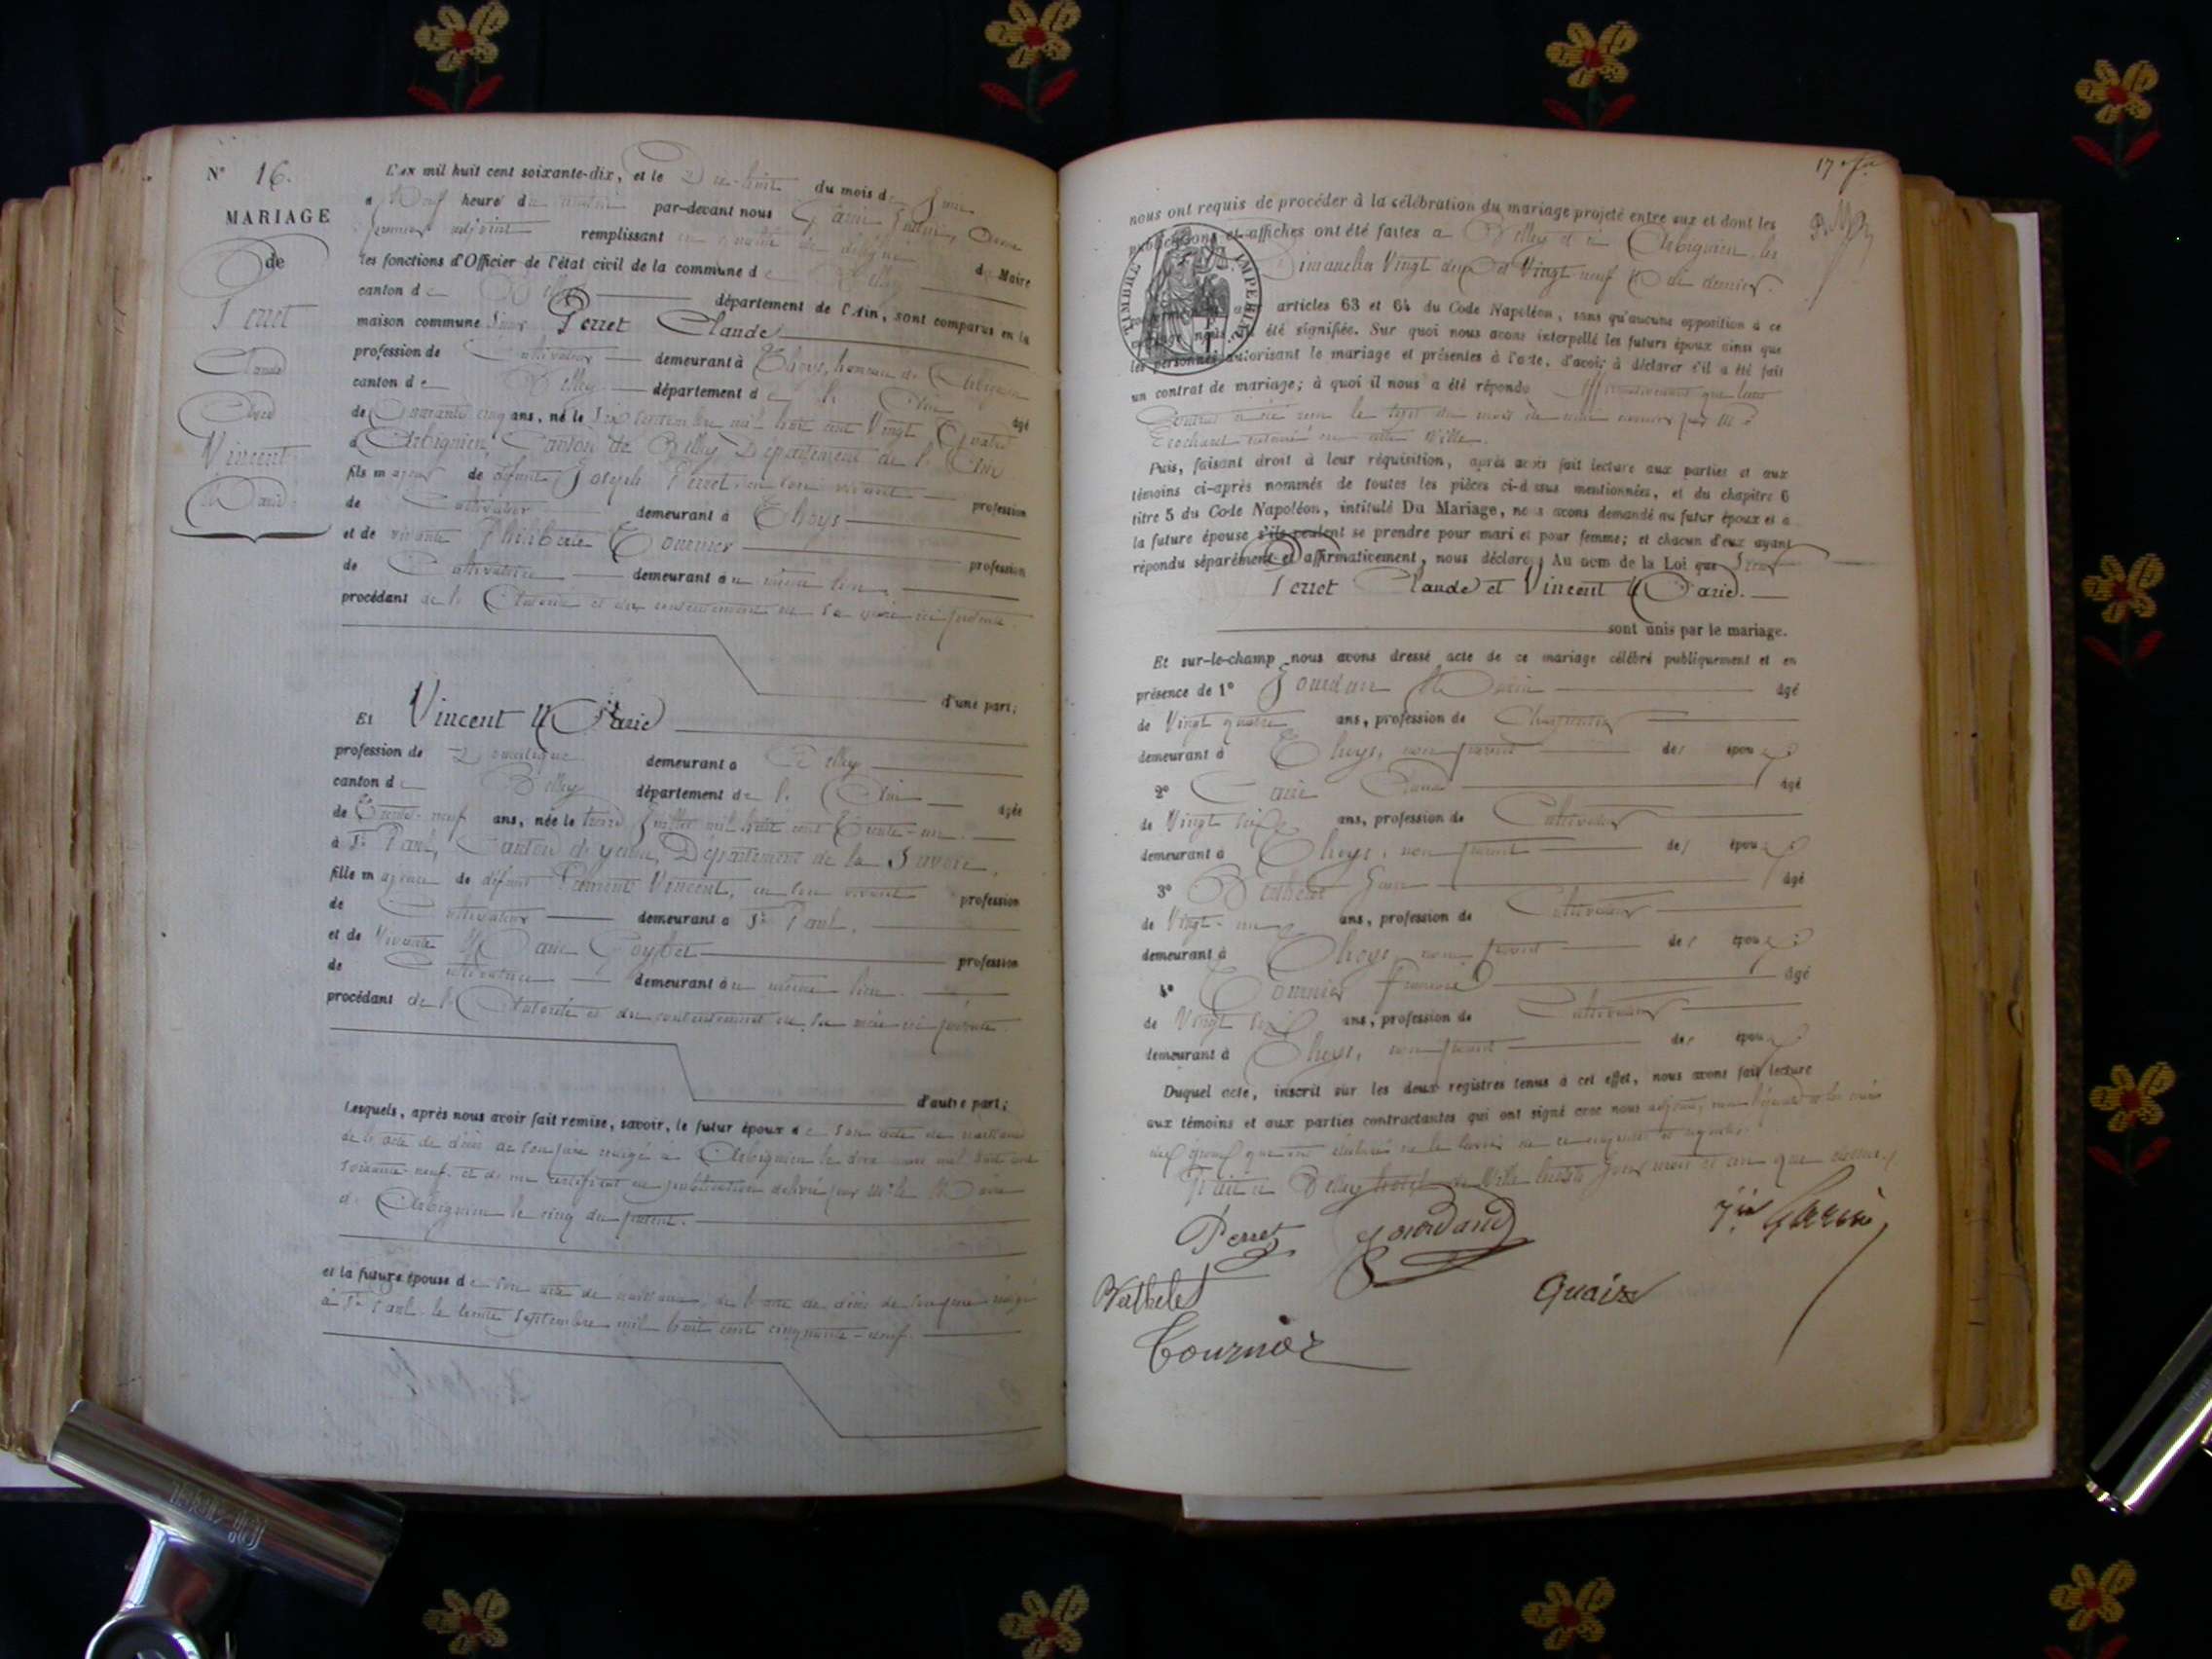 N° 16.
MARIAGE
de
Perret
Claude
Avec
Vincent
Marie
L'an mil huit cent soixante-dix, et le Dix-huit du mois de Juin
à Neuf heures du matin par-devant nous
premier adjoint remplissant en qualité de délégué du Maire
les fonctions d'Officier de l'état civil de la commune de Belley
canton de Belley département de l'Ain, sont comparus en la
maison commune Sieur Perret Claude
profession de Cultivateur demeurant à Thoys, hameau de Arbignieu
canton de Belley département de l'Ain âgé
de Quarante cinq ans, né le Six Septembre mil huit cent Vingt Quatre
à Arbignieu, Canton de Belley Département de l'Ain
fils majeur de défunt Joseph Perret en son vivant profession
de Cultivateur demeurant à Thoys
et de vivante Philiberte Tournier profession
de Cultivatrice demeurant au même lieu,
procédant de l'Autorité et du consentement de sa mère ici présente
d'une part;
Et Vincent Marie
profession de Domestique demeurant à Belley
canton de Belley département de l'Ain âgée
de Trente-neuf ans, née le treize Juillet mil huit cent Trente-un.
à St Paul, Canton de Yenne, Département de la Savoie,
fille majeure de défunt Clément Vincent, en son vivant profession
de Cultivateur demeurant à St Paul,
et de Vivante Marie Goybet profession
de Cultivatrice demeurant au même lieu.
procédant de l'Autorité et du consentement de sa mère ici présente
d'autre part;
Lesquels, après nous avoir fait remise, savoir, le futur époux de son acte de naissance
de l'acte de décès de son père rédigé à Arbignieu le deux mars mil huit cent
soixante-neuf. et de un certificat de publication délivré par Mr le Maire
d'Arbignieu le cinq du présent.
et la future épouse de son acte de naissance, de l'acte de décès de son père rédigé
à St Paul le trente Septembre mil huit cent cinquante-neuf.
17
nous ont requis de procéder à la célébration du mariage projeté entre eux et dont les
publications et affiches ont été faites à Belley et à Arbignieu les
Dimanches Vingt deux et Vingt neuf Mai dernier.
TIMBRE IMPERIAL
articles 63 et 64 du Code Napoléon, sans qu'aucune opposition à ce
mariage nous ait été signifiée. Sur quoi nous avons interpellé les futurs époux ainsi que
les personnes autorisant le mariage et présentes à l'acte, d'avoir à déclarer s'il a été fait
un contrat de mariage; à quoi il nous a été répondu Affirmativement que leur
Contrat a été reçu le sept du mois de par Me
notaire en cette Ville.
Puis, faisant droit à leur réquisition, après avoir fait lecture aux parties et aux
témoins ci-après nommés de toutes les pièces ci-dessus mentionnées, et du chapitre 6
titre 5 du Code Napoléon, intitulé Du Mariage, nous avons demandé au futur époux et à
la future épouse s'ils veulent se prendre pour mari et pour femme; et chacun d'eux ayant
répondu séparément et affirmativement, nous déclarons Au nom de la Loi que Sieur
Perret Claude et Vincent Marie.
sont unis par le mariage.
Et sur-le-champ nous avons dressé acte de ce mariage célébré publiquement et en
présence de 1° Jourdan Marin âgé
de Vingt quatre ans, profession de Charpentier
demeurant à Thoys, non parent des époux;
2° âgé
de Vingt six ans, profession de Cultivateur
demeurant à Thoys, non parent des époux;
3° Berthelet Jean âgé
de Vingt-un ans, profession de Cultivateur
demeurant à Thoys, non parent des époux;
4° Tournier François âgé
de Vingt six ans, profession de Cultivateur
demeurant à Thoys, non parent des époux
Duquel acte, inscrit sur les deux registres tenus à cet effet, nous avons fait lecture
aux témoins et aux parties contractantes qui ont signé avec nous adjoint, non l'épouse et les mères
des époux qui ont déclaré ne le savoir de ce enquises et requises.
Fait à Belley hotel de Ville lesdits jour mois et an que dessus.
Perret
Jourdand
Berthelet
Quaix
Tournier